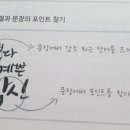 절과 문장의 포인트 찾기
문장에서 강조 되는 단어를 크게
다
예쁜
당신
문장에서 포인트를 찾아